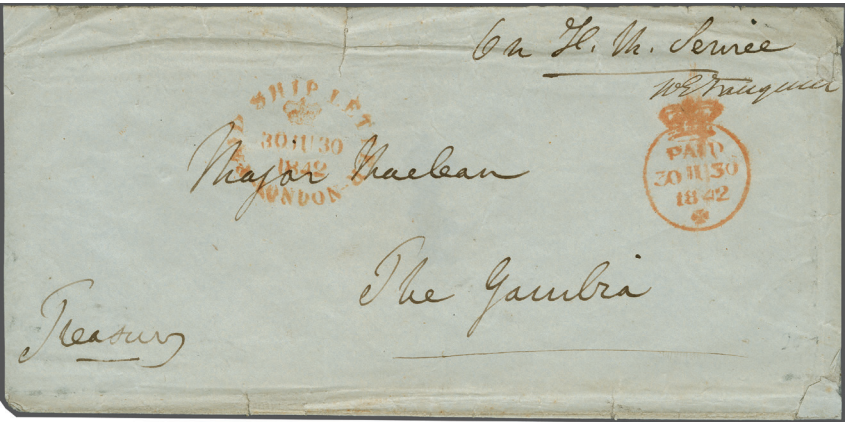 On H. M. Service
PAID SHIP LETTER
30 JU 30
1842
LONDON
PAID
30 JU 30
1842
Major Maclean
The Gambia
Treasury